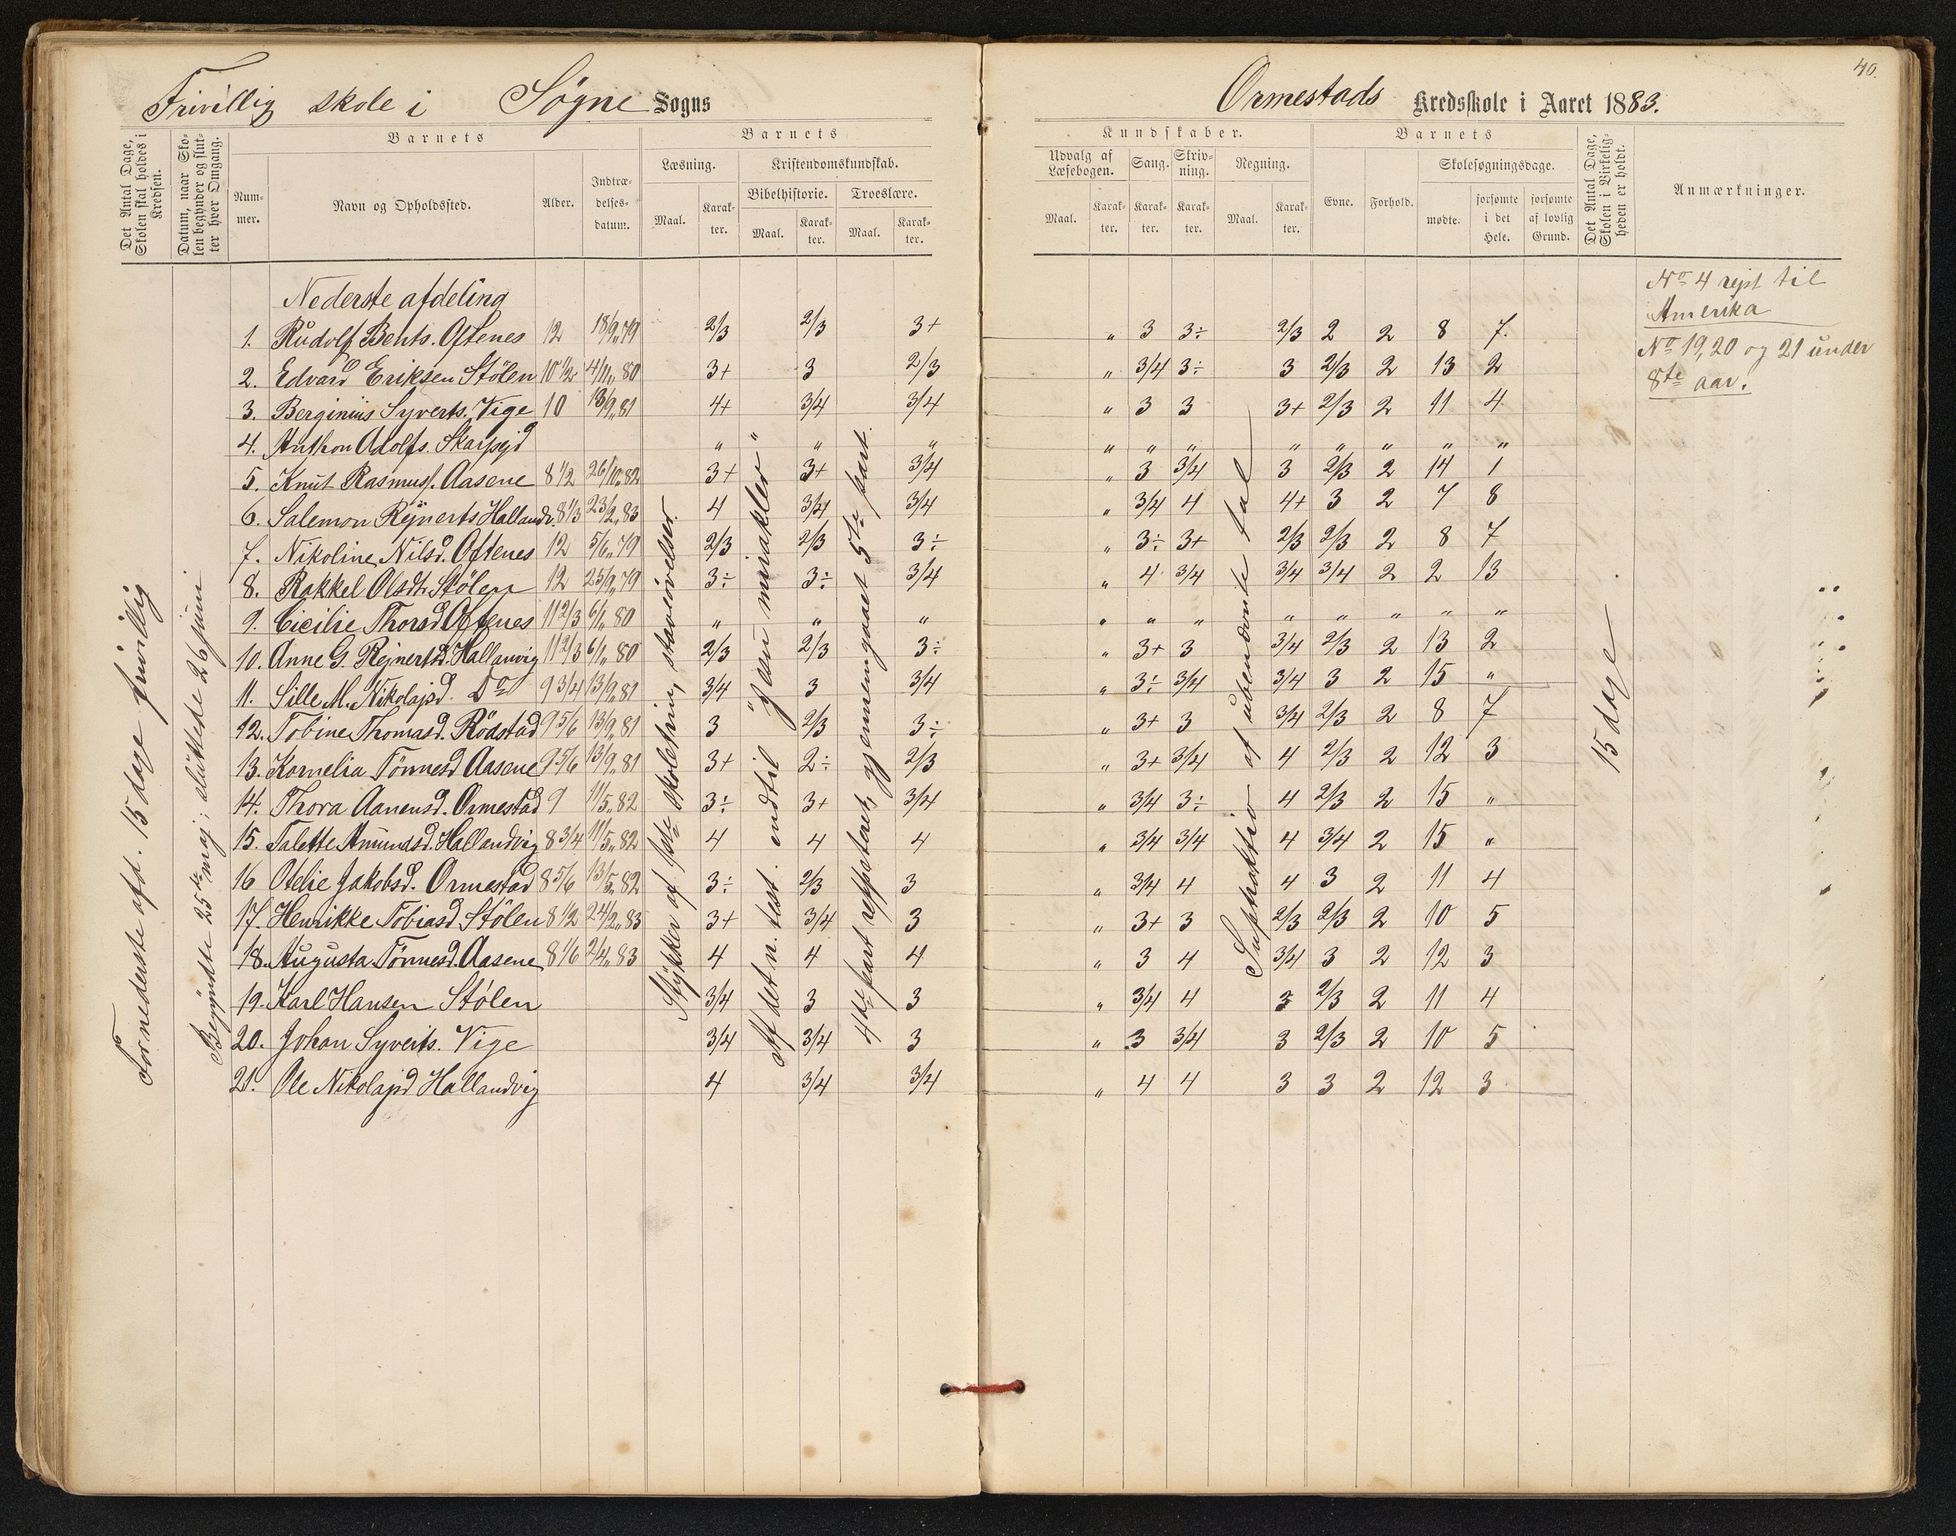 40.
Frivillig skole i Søgne Sogns
Ormestads Kredsskole i Aaret 1883.
Det Antal Dage, Skolen skal holdes i Kredsen.
Datum, naar Skolen begynder og slutter hver Omgang.
Barnets
Nummer.
Navn og Opholdssted.
Alder.
Indtrædelsesdatum.
Barnets
Læsning.
Maal.
Karakter.
Kristendomskundskab.
Bibelhistorie.
Maal.
Karakter.
Troeslære.
Maal.
Karakter.
Kundskaber.
Udvalg af Læsebogen.
Maal.
Karakter.
Sang.
Karakter.
Skrivning.
Karakter.
Regning.
Maal.
Karakter.
Barnets
Evne.
Forhold.
Skolesøgningsdage.
mødte.
forsømte i det Hele.
forsømte af lovlig Grund.
Det Antal Dage, Skolen i Virkeligheden er holdt.
Anmærkninger.
Fornederste afd. 15 dage frivillig
Begyndte 25de maj; sluttede 26 juni
Stykker af 1ste skoletrin, staveövelser.
Af det n. test. indtil "Jesu mirakler"
4de part reppeteret, gjennemgaaet 5te part.
Supstraktio af ubenævnte tal
15 dage.
Nederste afdeling
1. Rudolf Bents. Oftenes 12 18/9 79 2/3 2/3 3+ " 3 3÷ 2/3 2 2 8 7.
2. Edvard Eriksen Stölen 10 1/2 4/11 80 3+ 3 2/3 " 3/4 3÷ 3 2/3 2 13 2
3. Berginius Syverts. Vige 10 13/9 81 4+ 3/4 3/4 " 3 3 3+ 2/3 2 11 4
4. Anthon Adolfs. Skarpejd " " " " " " " " " " "
5. Knut Rasmus. Aasene 8 1/2 26/10 82 3+ 3+ 3/4 " 3 3/4 3 2/3 2 14 1
6. Salemon Rejnerts Hallandv. 8 1/3 23/2 83 4 3/4 3/4 " 3/4 4 4+ 3 2 7 8
7. Nikoline Nilsd. Oftenes 12 5/6 79 2/3 2/3 3÷ " 3÷ 3+ 2/3 2/3 2 8 7
8. Rakkel Olsdt. Stölen 12 25/9 79 3÷ 3÷ 3/4 " 4 3/4 3/4 3/4 2 2 13
9. Cicilie Thorsd Oftenes 11 2/3 6/1 80 " " " " " " " " " " "
10. Anne G. Rejnertsd. Hallanvig 11 2/3 6/1 80 2/3 2/3 3÷ " 3+ 3 3/4 2/3 2 13 2
11. Sille M. Nikolajd. Do 9 3/4 13/9 81 3/4 3 3/4 " 3÷ 3/4 3/4 3 2 15 "
12. Tobine Thomasd. Rödstad 9 5/6 13/9 81 3 2/3 3÷ " 3+ 3 3/4 2/3 2 8 7
13. Kornelia Tönnesd Aasene 9 5/6 13/9 81 3+ 2÷ 2/3 " 3+ 3/4 4 2/3 2 12 3
14. Thora Aanensd. Ormestad 9 11/5 82 3÷ 3+ 3/4 " 3/4 3÷ 4 2/3 2 15 "
15. Talette Amundsd. Hallandvig 8 3/4 11/5 82 4 4 4 " 3/4 3/4 4 3/4 2 15 "
16 Otelie Jakobsd. Ormestad 8 5/6 13/5 82 3÷ 2/3 3 " 3/4 4 4 3 2 11 4
17. Henrikke Tobiasd Stölen 8 1/2 24/2 83 3+ 3/4 3 " 3+ 3 2/3 2/3 2 10 5
18. Augusta Tönnesd. Aasene 8 1/6 2/4 83 4 4 4 " 3 4 3/4 3 2 12 3
19. Karl Hansen Stölen 3/4 3 3 " 3/4 4 3 2/3 2 11 4
20. Johan Syverts. Vige 3/4 3/4 3 " 3 3/4 3 2/3 2 10 5
21. Ole Nikolajd Hallandvig 4 3/4 3/4 " 4 4 3 3 2 12 3
No 4 rejst til
Amerika
No 19, 20 og 21 under
8te aar.